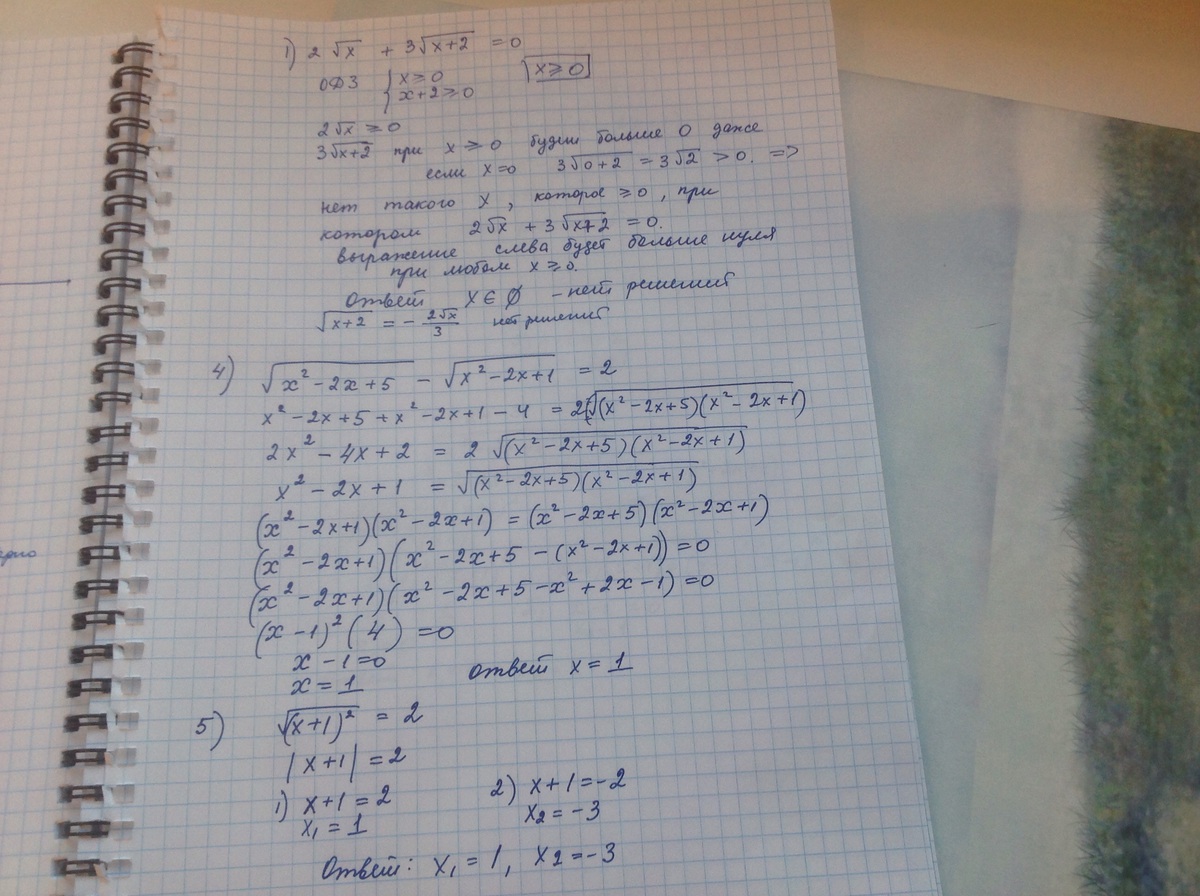 1) 2√x + 3√(x+2) = 0
ОДЗ { x ≥ 0 x ≥ 0
x+2 ≥ 0
2√x ≥ 0
3√(x+2) при x ≥ 0 будет больше 0 даже
если x=0 3√(0+2) = 3√2 > 0. =>
нет такого x, которое ≥ 0, при
котором 2√x + 3√(x+2) = 0.
выражение слева будет больше нуля
при любом x ≥ 0.
Ответ x ∈ ∅ - нет решений
√(x+2) = - 2√x/3 нет решений
4) √(x² - 2x + 5) - √(x² - 2x + 1) = 2
x² - 2x + 5 + x² - 2x + 1 - 4 = 2√((x² - 2x + 5)(x² - 2x + 1))
2x² - 4x + 2 = 2 √((x² - 2x + 5)(x² - 2x + 1))
x² - 2x + 1 = √((x² - 2x + 5)(x² - 2x + 1))
(x² - 2x + 1)(x² - 2x + 1) = (x² - 2x + 5)(x² - 2x + 1)
(x² - 2x + 1)(x² - 2x + 5 - (x² - 2x + 1)) = 0
(x² - 2x + 1)(x² - 2x + 5 - x² + 2x - 1) = 0
(x - 1)² (4) = 0
x - 1 = 0
x = 1 Ответ x = 1
5) √(x+1)² = 2
|x+1| = 2
1) x+1 = 2 2) x+1 = -2
x₁ = 1 x₂ = -3
Ответ: x₁ = 1, x₂ = -3